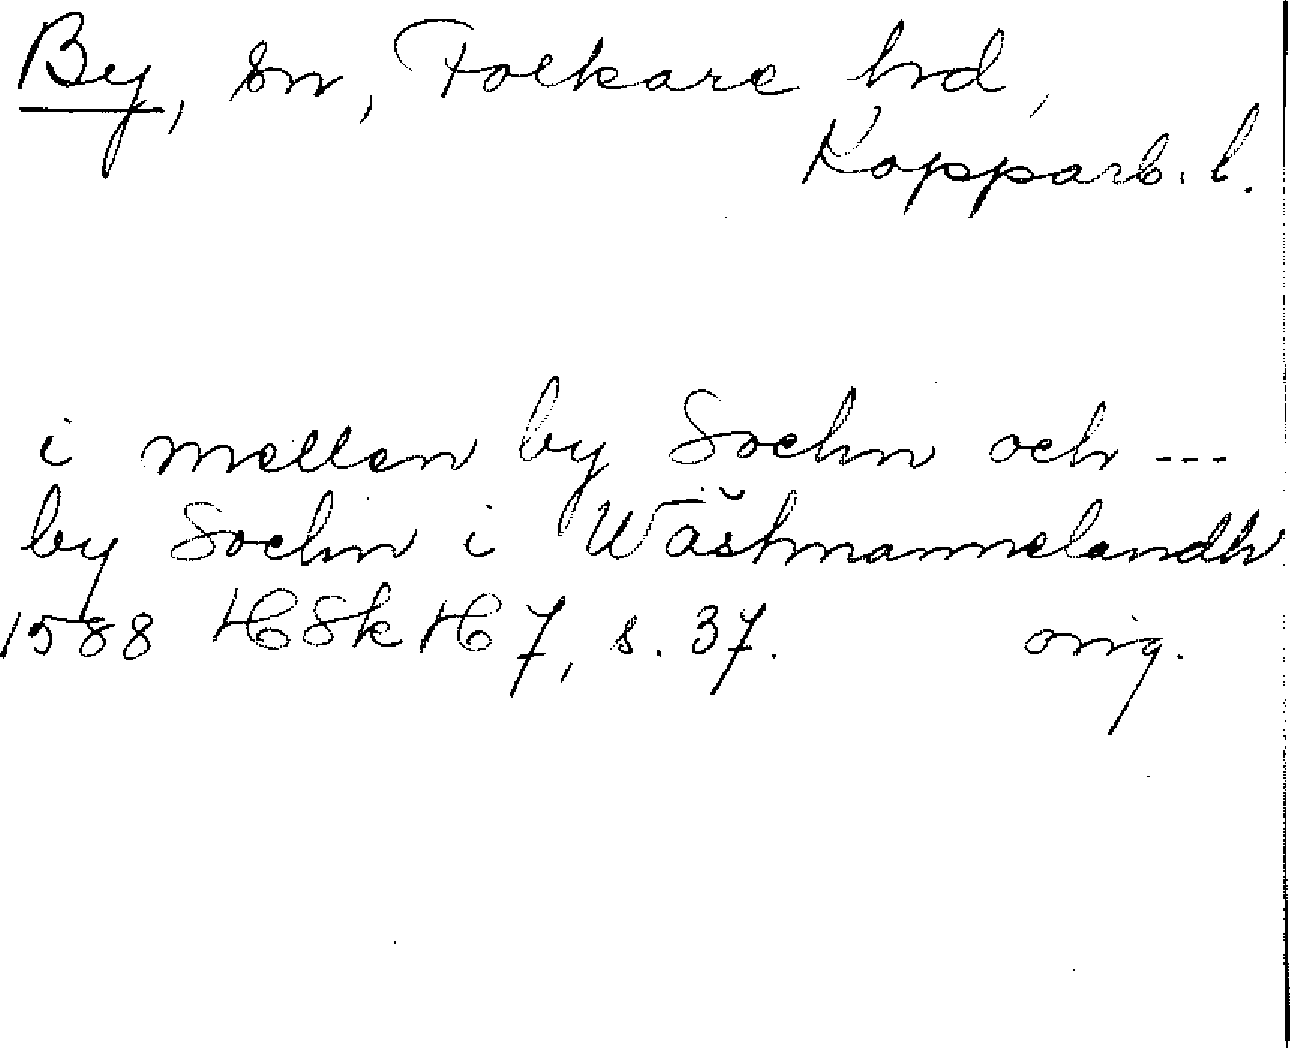 By, sn, Folkare hd,
Kopparb. l.
i mellen by Sochn och ---
by Sochn i Wästmannelandh
1588 HSkH 7, s. 37. orig.